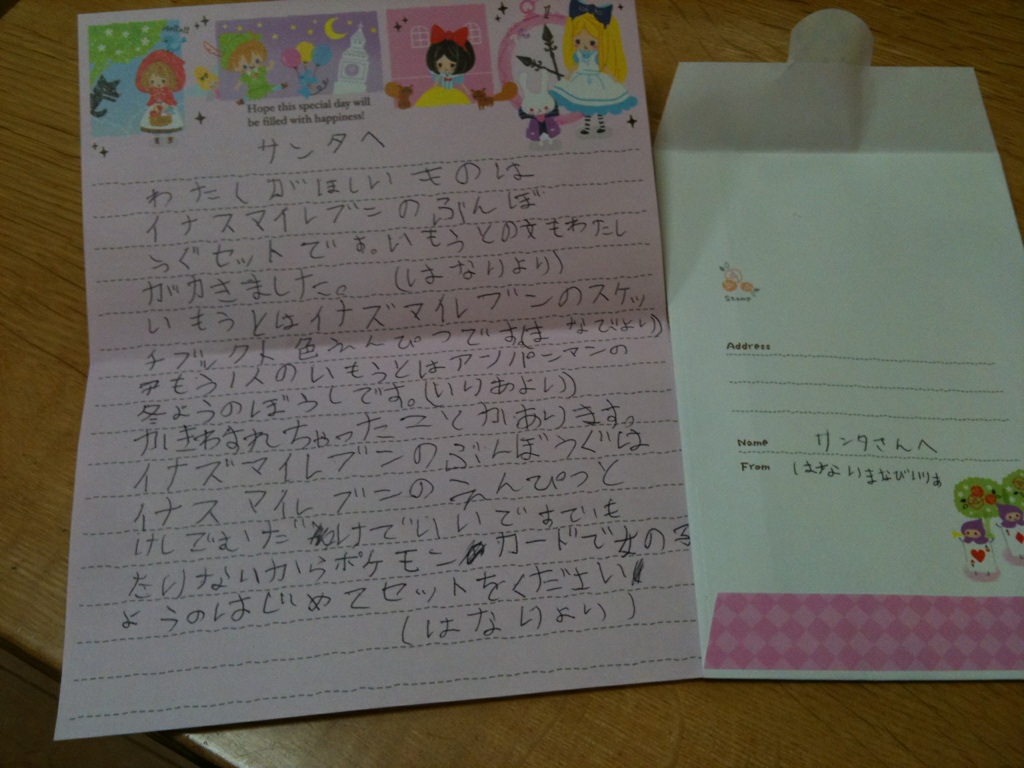 Hope this special day will
be filled with happiness!
サンタへ
わたしがほしいものは
イナスマイレブンのぶんぼ
うぐセットです。いもうとの文もわたし
がかきました。(はなりより)
いもうとはイナズマイレブンのスケッ
チブックと色えんぴつです(はなびより)
もう1人のいもうとはアンパンマンの
冬ようのぼうしです。(いりあより)
かきわすれちゃったことがあります。
イナズマイレブンのぶんぼうぐは
イナスマイレブンのえんぴつと
けしごむだけでいいですでも
たりないからポケモンカードで女の子
ようのはじめてセットをください
(はなりより)
Stamp
Address
Name サンタさんへ
From はなりまなびいりあ